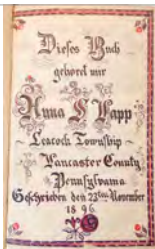 Dieses Buch
gehöret mir
Anna L Lapp
Leacock Township
Lancaster County
Pennsylvania
Geschrieben den 23ten November
1896